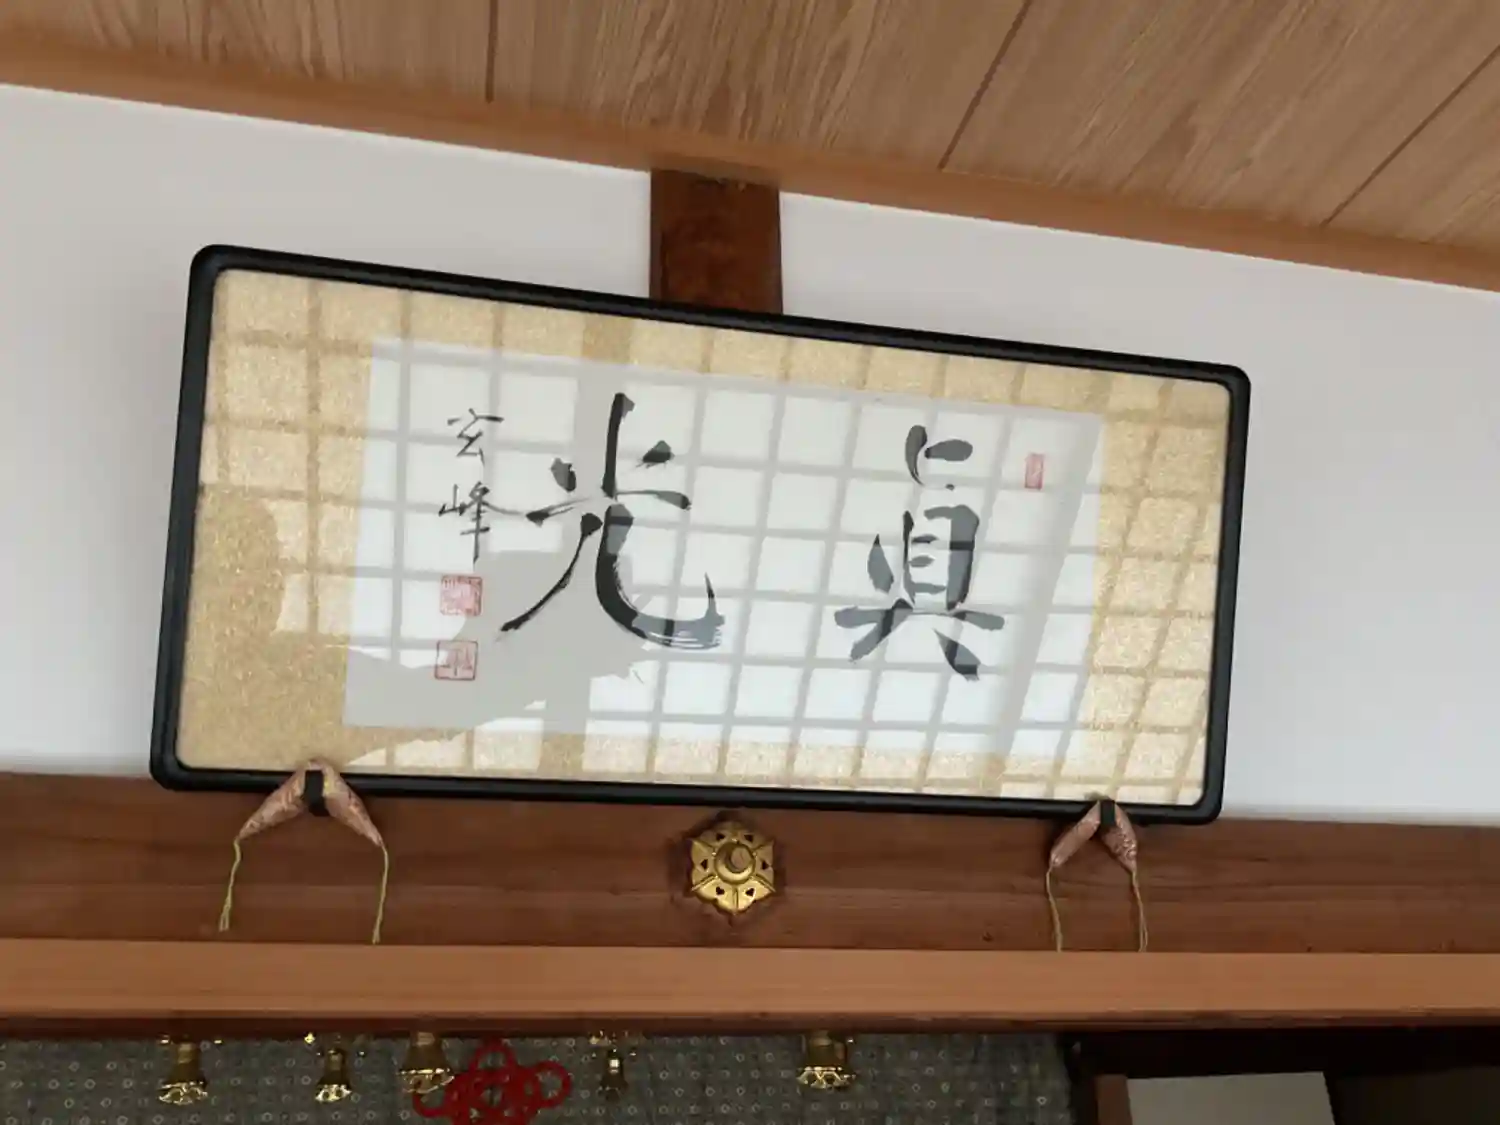 眞光
玄峰